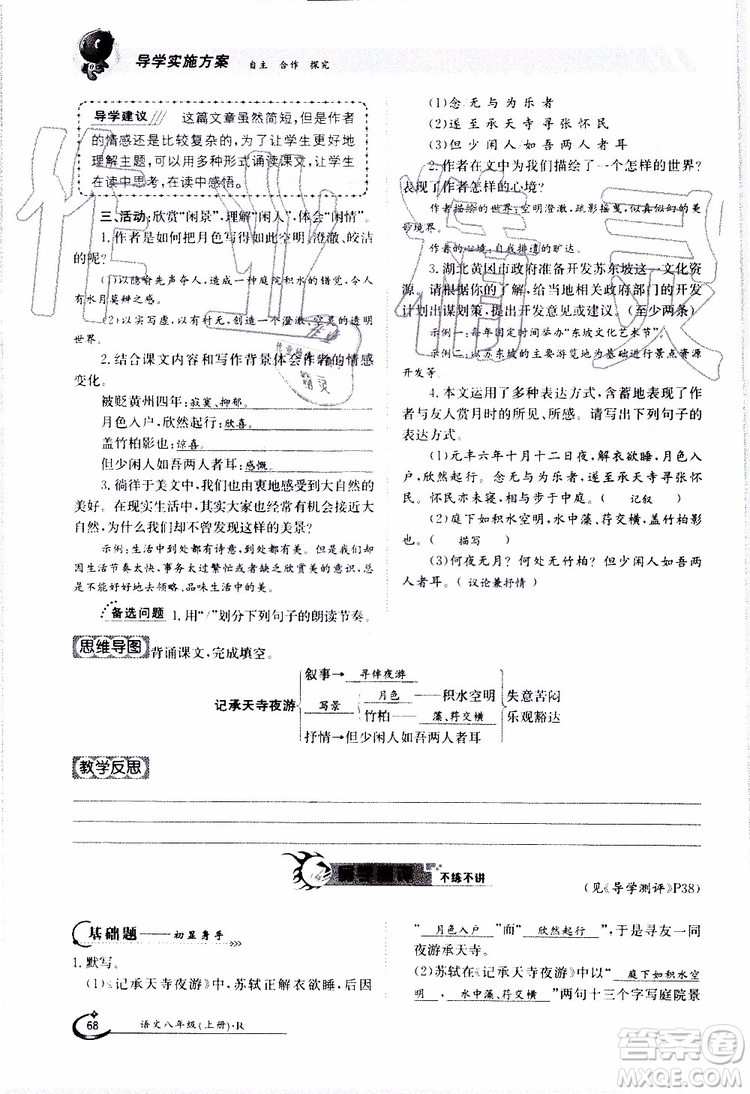 导学实施方案 自主 合作 探究
导学建议 这篇文章虽然简短,但是作者
的情感还是比较复杂的,为了让学生更好地
理解主题,可以用多种形式诵读课文,让学生
在读中思考,在读中感悟。
三、活动:欣赏“闲景”,理解“闲人”,体会“闲情”。
1.作者是如何把月色写得如此空明、澄澈、皎洁
的呢?
(1)以隐喻先声夺人,造成一种庭院积水的错觉,令人
有水月莫辨之感。
(2)以实写虚,以有衬无,创造一个澄澈、空灵的透明
世界。
2.结合课文内容和写作背景体会作者的情感
变化。
被贬黄州四年:寂寞、抑郁。
月色入户,欣然起行:欣喜。
盖竹柏影也:惊喜。
但少闲人如吾两人者耳:感慨。
3.徜徉于美文中,我们也由衷地喜欢上大自然的
美好。在现实生活中,其实大家也有很多机会接近大
自然,为什么我们却不曾发现这样的美景?
示例:生活中到处都有诗意,到处都有美景。可能是因
为生活节奏太快,事务太过繁忙或者缺乏欣赏美的意识,总
是不能好好地去领略、品味生活中的诗意。
备选问题 1.用“/”划分下列句子的朗读节奏。
(1)念 无 与 为 乐 者
(2)遂 至 承 天 寺 寻 张 怀 民
(3)但 少 闲 人 如 吾 两 人 者 耳
2.作者在文中为我们描绘了一个怎样的世界?
表现了作者怎样的心境?
作者描绘的世界:空明澄澈,疏影摇曳,似真似幻的美
妙境界。
作者的心境:自我排遣的旷达。
3.湖北黄冈市政府准备开发苏东坡这一文化资
源。请你结合所学内容,给相关政府部门们的开发
计划出谋划策,提出开发意见或建议。(至少两条)
示例一:每年固定时间举办“东坡文化艺术节”。
示例二:以苏东坡的主要游览地为基础进行景点资源
开发和扩展。
4.本文运用了多种表达方式,含蓄地表现了作者
与友人赏月时的所见、所感。请写出下列句子的
表达方式。
(1)元丰六年十月十二日夜,解衣欲睡,月色入
户,欣然起行。念无与为乐者,遂至承天寺寻张怀
民。怀民亦未寝,相与步于中庭。( 记叙 )
(2)庭下如积水空明,水中藻、荇交横,盖竹柏影
也。( 描写 )
(3)何夜无月?何处无竹柏?但少闲人如吾两
人者耳。(议论兼抒情)
思维导图 背诵课文,完成填空。
记承天寺夜游
叙事→ 寻伴夜游
写景
月色 ——积水空明
竹柏—— 藻、荇交横
抒情→但少闲人如吾两人者耳
失意苦闷
乐观豁达
教学反思
导学测评 不练不讲
(见《导学测评》P38)
基础题——初显身手
1.默写。
(1)《记承天寺夜游》中,苏轼正解衣欲睡,却因
“ 月色入户 ”而“ 欣然起行 ”,于是寻友一同
夜游承天寺。
(2)苏轼在《记承天寺夜游》中以“ 庭下如积水空
明 , 水中藻、荇交横 ”两句十三个字写庭院景
68 语文八年级(上册)·R
作业精灵
答案圈
MXQE.COM